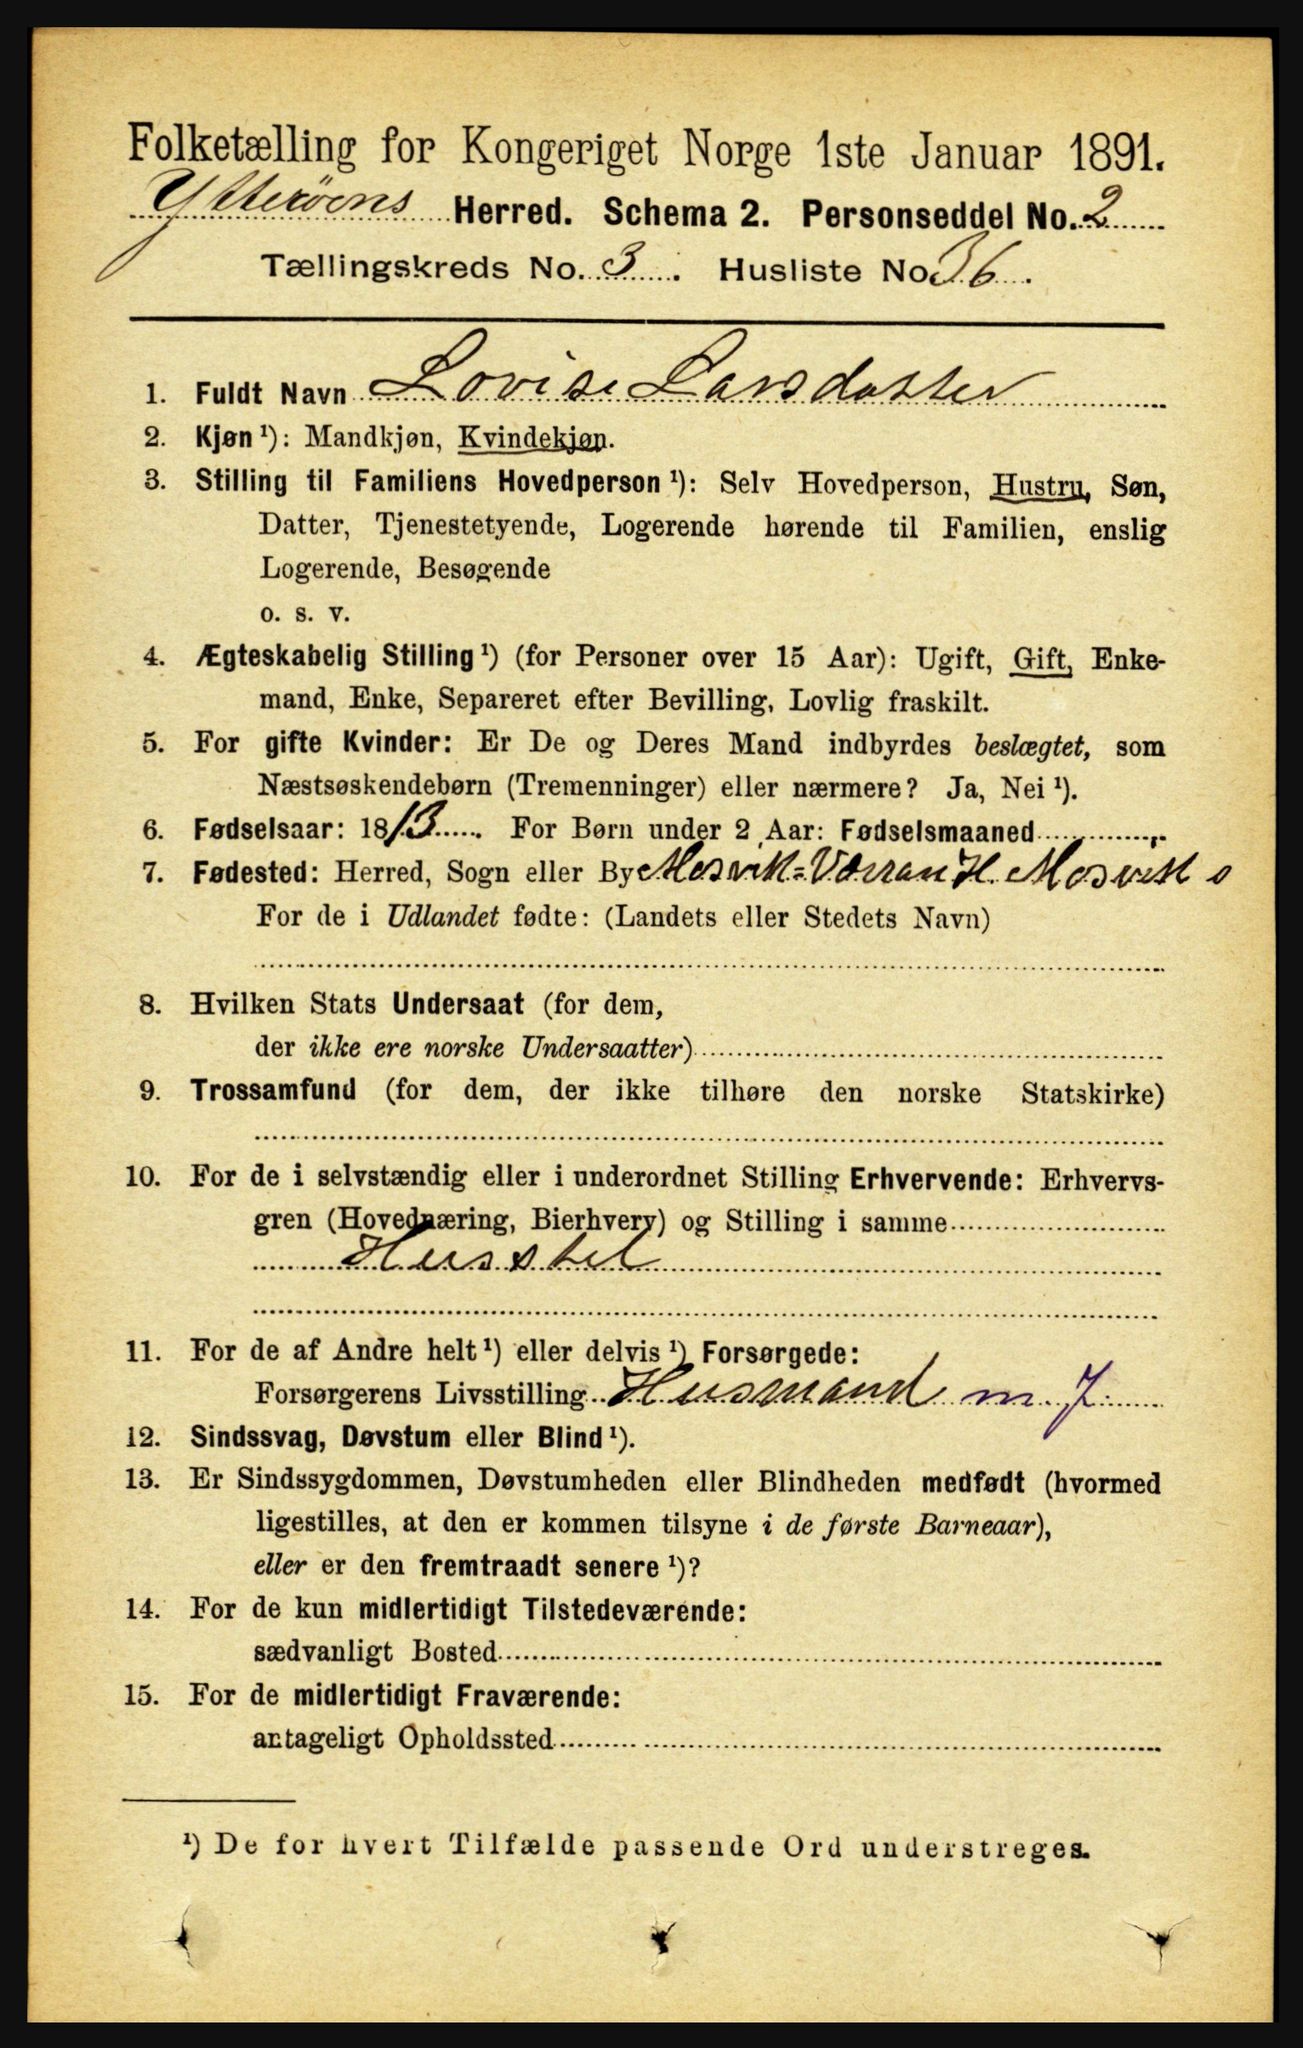 Folketælling for Kongeriget Norge 1ste Januar 1891.
Ytterøens Herred. Schema 2. Personseddel No. 2
Tællingskreds No. 3. Husliste No. 36.
1. Fuldt Navn Lovise Larsdatter
2. Kjøn ¹): Mandkjøn, Kvindekjøn.
3. Stilling til Familiens Hovedperson ¹): Selv Hovedperson, Hustru, Søn,
Datter, Tjenestetyende, Logerende hørende til Familien, enslig
Logerende, Besøgende
o. s. v.
4. Ægteskabelig Stilling ¹) (for Personer over 15 Aar): Ugift, Gift, Enke-
mand, Enke, Separeret efter Bevilling, Lovlig fraskilt.
5. For gifte Kvinder: Er De og Deres Mand indbyrdes beslægtet, som
Næstsøskendebørn (Tremenninger) eller nærmere? Ja, Nei ¹).
6. Fødselsaar: 1813. For Børn under 2 Aar: Fødselsmaaned
7. Fødested: Herred, Sogn eller By Mosvik=Værran H. Mosvik s
For de i Udlandet fødte: (Landets eller Stedets Navn)
8. Hvilken Stats Undersaat (for dem,
der ikke ere norske Undersaatter)
9. Trossamfund (for dem, der ikke tilhøre den norske Statskirke)
10. For de i selvstændig eller i underordnet Stilling Erhvervende: Erhvervs-
gren (Hovednæring, Bierhverv) og Stilling i samme
Husstel
11. For de af Andre helt ¹) eller delvis ¹) Forsørgede:
Forsørgerens Livsstilling Husmand m. J.
12. Sindssvag, Døvstum eller Blind ¹).
13. Er Sindssygdommen, Døvstumheden eller Blindheden medfødt (hvormed
ligestilles, at den er kommen tilsyne i de første Barneaar),
eller er den fremtraadt senere ¹)?
14. For de kun midlertidigt Tilstedeværende:
sædvanligt Bosted
15. For de midlertidigt Fraværende:
antageligt Opholdssted
¹) De for hvert Tilfælde passende Ord understreges.